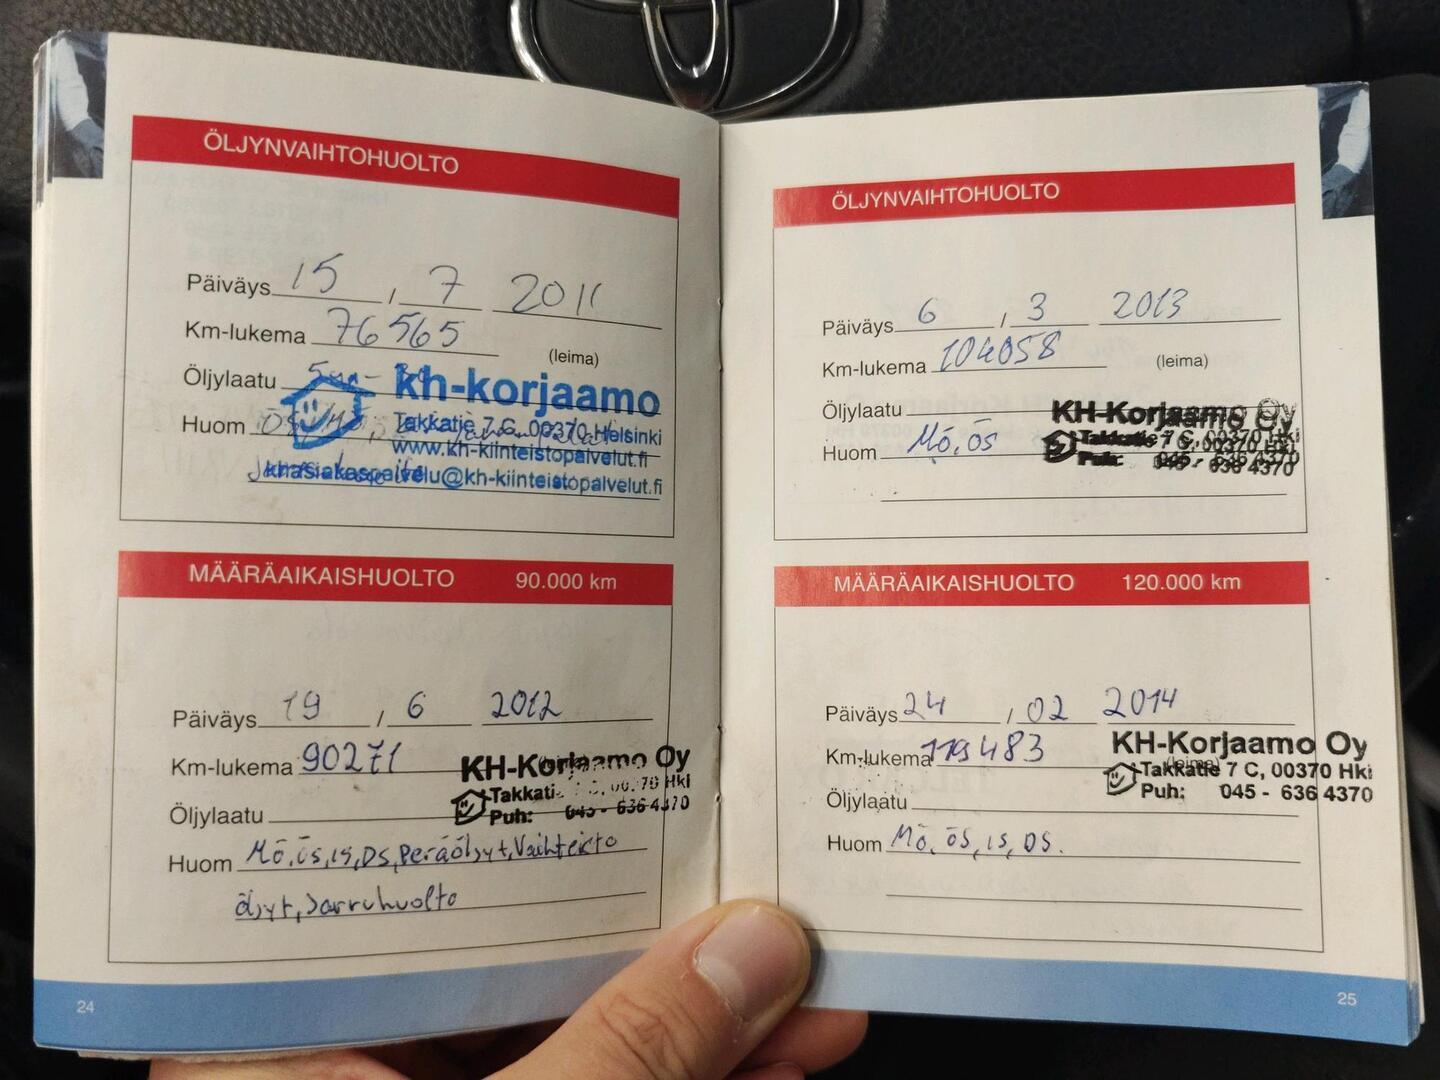 ÖLJYNVAIHTOHUOLTO
Päiväys 15 / 7 2011
Km-lukema 76565
(leima)
Öljylaatu
Huom
kh-korjaamo
Takkatie 7 C, 00370 Helsinki
www.kh-kiinteistopalvelut.fi
khasiakaspalvelu@kh-kiinteistopalvelut.fi
MÄÄRÄAIKAISHUOLTO 90.000 km
Päiväys 19 / 6 2012
Km-lukema 90271
KH-Korjaamo Oy
Takkatie 7 C, 00370 Hki
Puh: 045 - 636 4370
Öljylaatu
Huom Mö, ös, is, DS, Peräöljyt, Vaihteisto
öljyt, Jarruhuolto
24
ÖLJYNVAIHTOHUOLTO
Päiväys 6 / 3 2013
Km-lukema 104058
(leima)
Öljylaatu
Huom Mö, ös
KH-Korjaamo Oy
Takkatie 7 C, 00370 Hki
Puh: 045 - 636 4370
MÄÄRÄAIKAISHUOLTO 120.000 km
Päiväys 24 / 02 2014
Km-lukema 119483
(leima)
KH-Korjaamo Oy
Takkatie 7 C, 00370 Hki
Puh: 045 - 636 4370
Öljylaatu
Huom Mö, ös, is, DS.
25